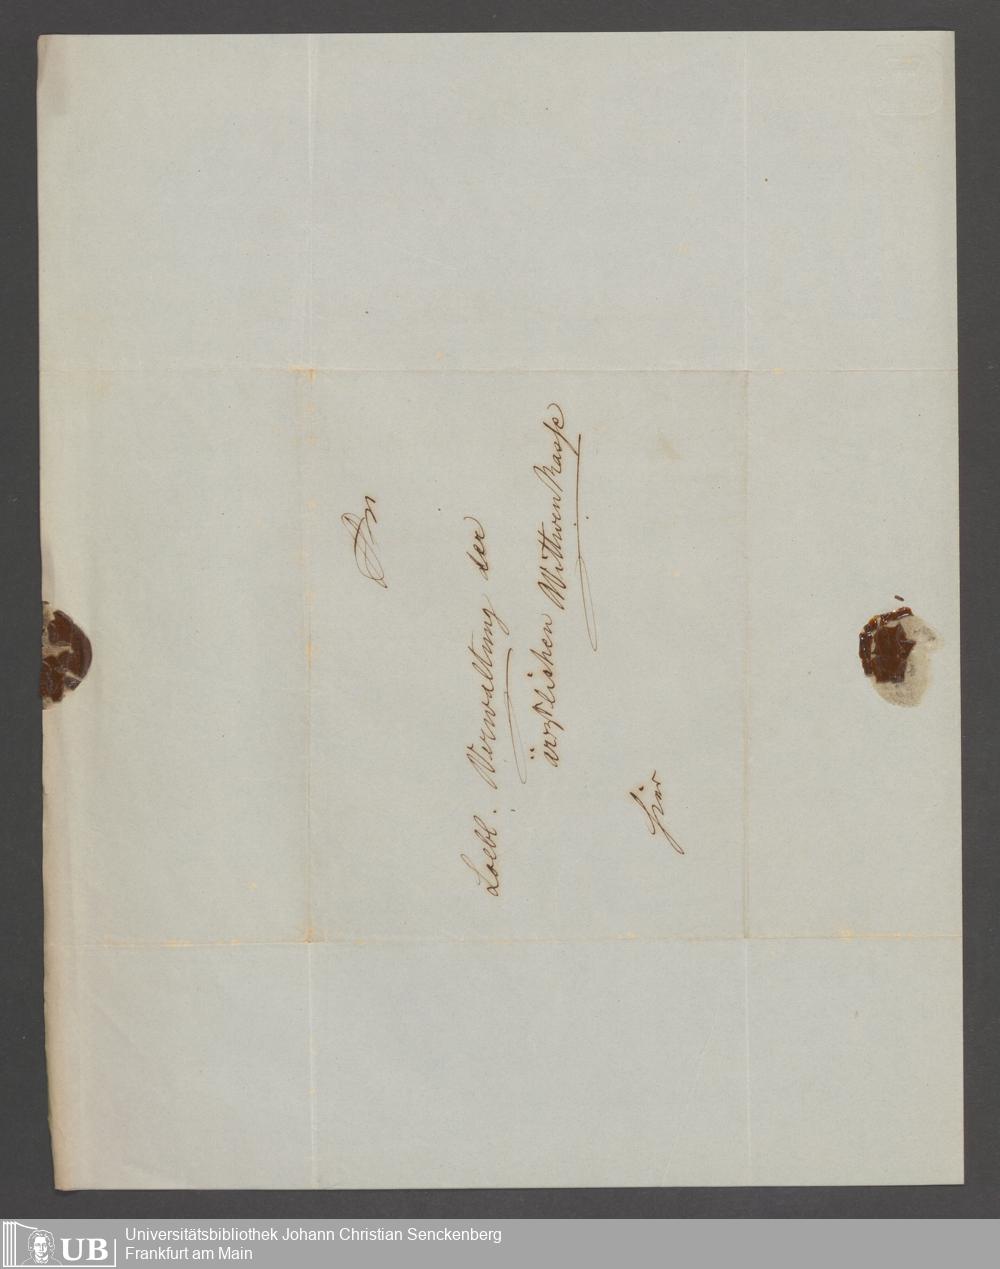 An
Loebl. Verwaltung der
ärztlichen Wittwenkasse
hier
Universitätsbibliothek Johann Christian Senckenberg
Frankfurt am Main
UB